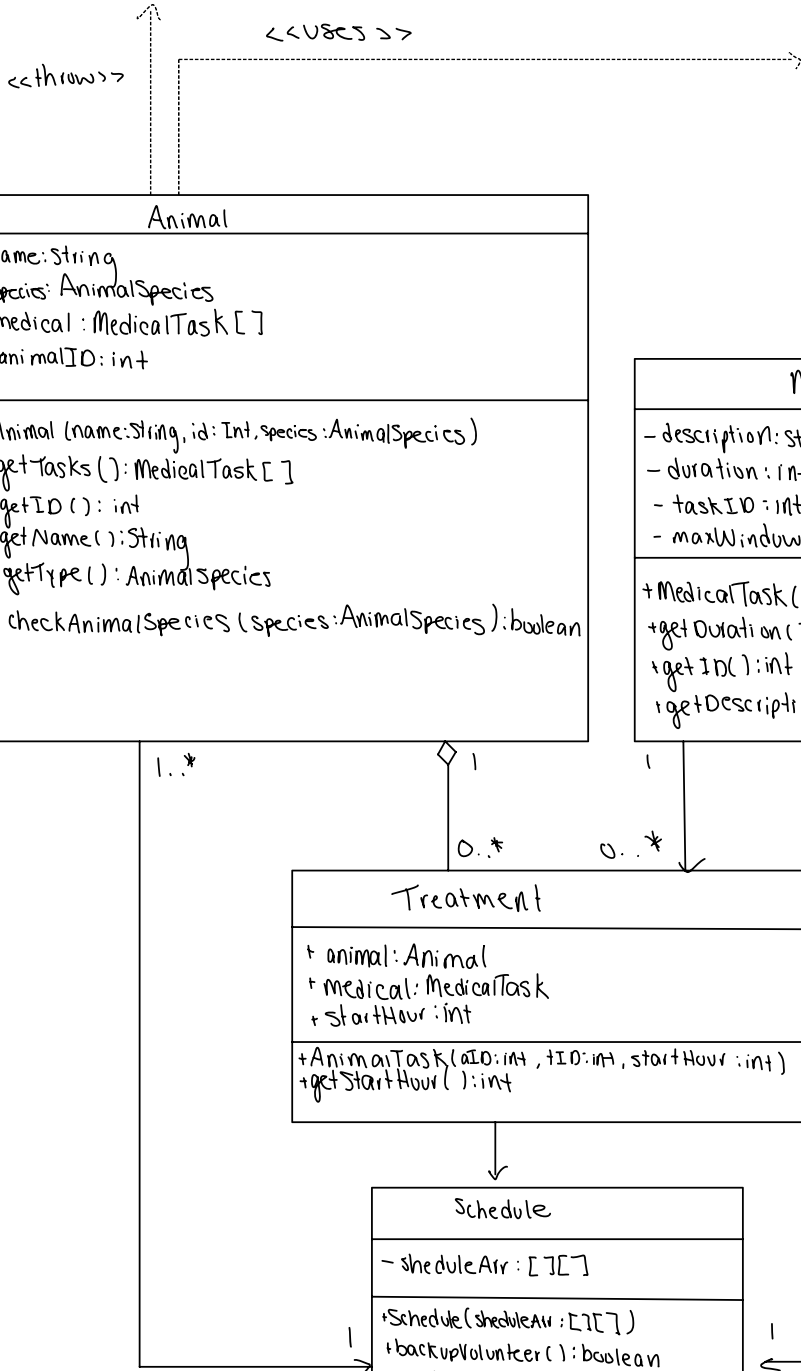 <<uses>>
<<throw>>
Animal
ame: String
pecies: AnimalSpecies
medical: MedicalTask[]
animalID: int
Animal (name:String, id: Int, species: AnimalSpecies)
getTasks(): MedicalTask[]
getID(): int
getName(): String
getType(): AnimalSpecies
checkAnimalSpecies (species: AnimalSpecies): boolean
- description: St
- duration: in
- taskID: int
- maxWindow
+MedicalTask(
+getDuration(
+getID(): int
+getDescripti
1..*
1
1
0..*
0..*
Treatment
+ animal: Animal
+ medical: MedicalTask
+ startHour: int
+AnimalTask(aID: int, tID: int, startHour: int)
+getStartHour(): int
Schedule
- sheduleArr: [][]
+Schedule(sheduleArr: [][])
+backupVolunteer(): boolean
1
1